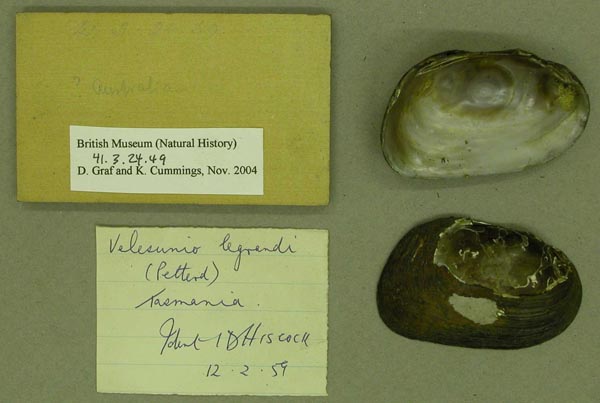 ? Australia
British Museum (Natural History)
41.3.24.49
D. Graf and K. Cummings, Nov. 2004
Velesunio legrandi
(Petterd)
Tasmania.
Ident I D HISCOCK
12.2.59